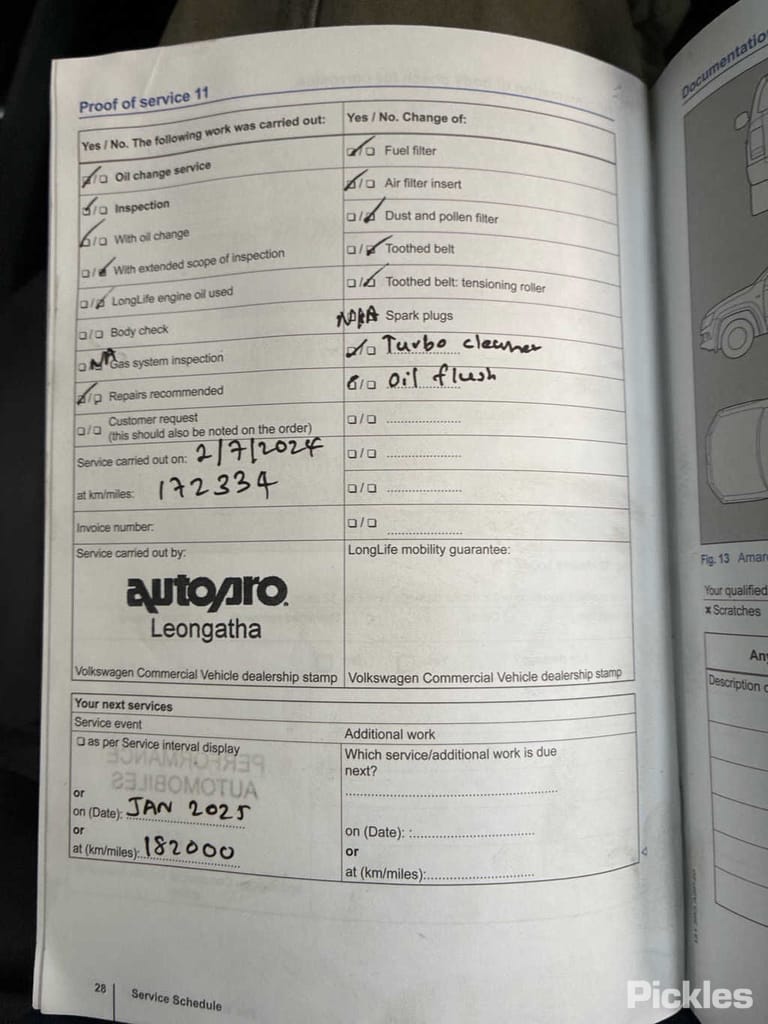 Proof of service 11
Yes / No. The following work was carried out:
☑/☐ Oil change service
☑/☐ Inspection
☑/☐ With oil change
☐/☑ With extended scope of inspection
☐/☑ LongLife engine oil used
☐/☐ Body check
☐ NA Gas system inspection
☑/☐ Repairs recommended
☐/☐ Customer request
(this should also be noted on the order)
Service carried out on: 2/7/2024
at km/miles: 172334
Invoice number:
Service carried out by:
autopro.
Leongatha
Volkswagen Commercial Vehicle dealership stamp
Yes / No. Change of:
☑/☐ Fuel filter
☑/☐ Air filter insert
☐/☑ Dust and pollen filter
☐/☑ Toothed belt
☐/☑ Toothed belt: tensioning roller
Spark plugs
☑/☐ Turbo cleaner
☑/☐ Oil flush
☐/☐ ....................
☐/☐ ....................
☐/☐ ....................
☐/☐ ....................
LongLife mobility guarantee:
Volkswagen Commercial Vehicle dealership stamp
Your next services
Service event
☐ as per Service interval display
PERFORMANCE
AUTOMOBILES
or
on (Date): JAN 2025
or
at (km/miles): 182000
Additional work
Which service/additional work is due
next?
..................................................
on (Date): :..............................
or
at (km/miles):..........................
28 Service Schedule
Documentatio
Fig. 13 Amar
Your qualified
x Scratches
Any
Description o
Pickles